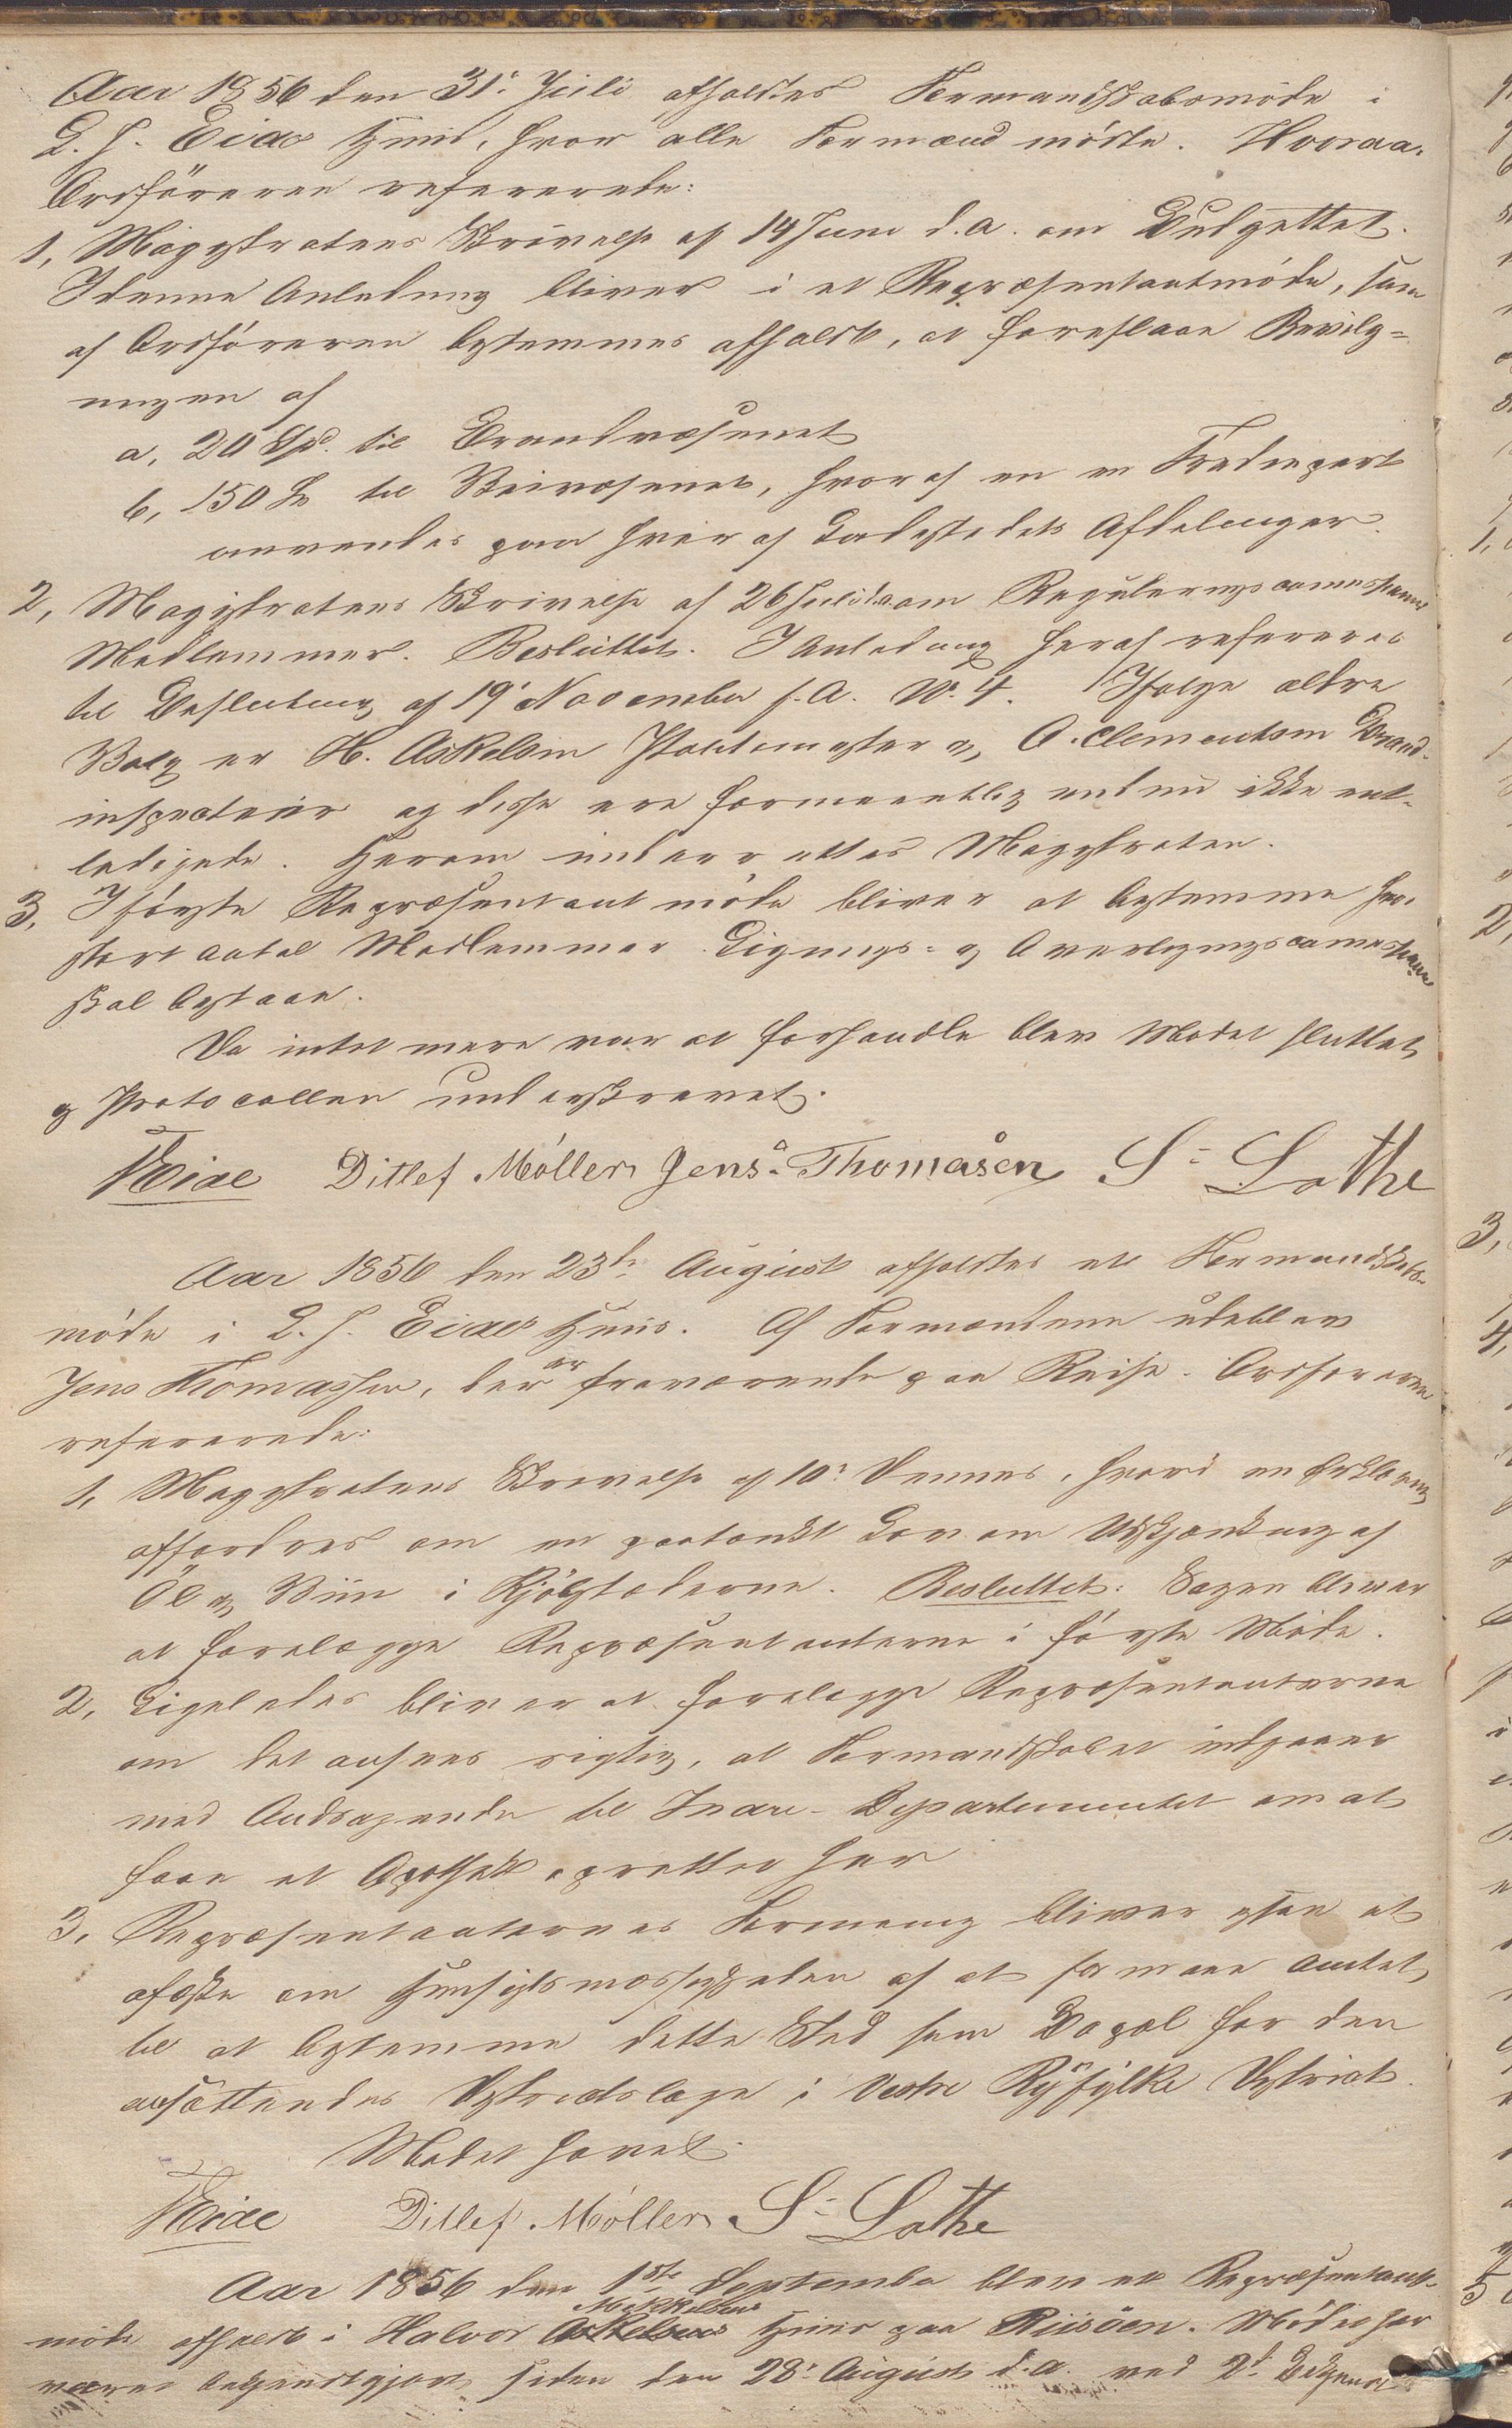 Aar 1856 den 31' Juli afholdtes Formandskabsmöde i
L. H. Eides Huus, hvor alle Formænd mödte. Hvoraa.
Ordföreren refererede:
1, Magistratens Skrivelse af 14 Juni d. A. om Budgettet.
I denne Anledning bliver i et Repræsentantmöde, som
af Ordföreren bestemmes afholdt, at foreslaae Bevilg=
ningen af
a, 20 Spd. til Brandvæsenet
b, 150 Sp til Veivæsenet, hvoraf en en Trediepart
anvendes paa hver af Ladestedets Afdelinger.
2, Magistratens Skrivelse af 26 Juli d. A. om Reguleringscommissionens
Medlemmer. Besluttet. I Anledning heraf refereres
til Beslutning af 19' November f. A. No. 4. Ifölge ældre
Valg er H. Askelsen Stadtimester og A. Clementsen Brand-
inspecteur og disse ere formeentlig endnu ikke ent-
ledigede. Herom underrettes Magistraten.
3, I förste Repræsentantmöde bliver at bestemme hvor
stort Antal Medlemmer Lignings= og Overligningscommissionen
skal bestaae.
Da intet mere var at forhandle blev Mödet sluttet
og Protocollen underskrevet.
Eide Ditlef Möller Jens Thomasen S= Lothe
Aar 1856 den 23de August afholdtes et Formandskabs-
möde i L. H. Eides Huus. Af Formændene udeblev
Jens Thomassen, der er fraværende paa Reise. Ordföreren
refererede:
1, Magistratens Skrivelse af 10' dennes, hvori en Erklæring
affordres om en paatænkt Lov om Udskjænkning af
Öl og Viin i Kjöbstæderne. Besluttet: Sagen bliver
at forelægge Repræsentanterne i förste Möde.
2, Ligeledes bliver at forelægge Repræsentanterne
om det ansees rigtig, at Formandskabet indgaaer
med Andragende til Indre-Departementet om at
faae et Apothek oprettet her
3, Repræsentanternes Formening bliver ogsaa at
afæske om Hensigtsmæssigheden af at formaae Amtet
til at bestemme dette Sted som Bopæl for den
ansættendes Districtslæge i Vestre Ryfylke District.
Mödet hævet.
Eide Ditlef Möller S= Lothe
Aar 1856 den 1ste September blev et Repræsentant-
möde afholdt i Halvor Mikkelsens Huus paa Riisöen. Mödet har
været bekjendtgjort siden den 28' August d. A. ved 2de Bekjendt